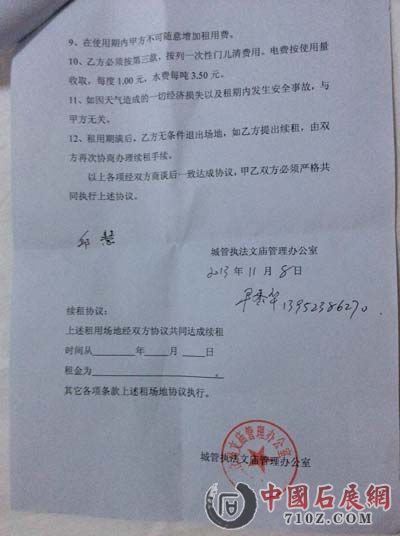 9、在使用期内甲方不可随意增加租用费。
10、乙方必须按第三款，按列一次性门儿清费用。电费按使用量
收取，每度 1.00 元，水费每吨 3.50 元。
11、如因天气造成的一切经济损失以及租期内发生安全事故，与
甲方无关。
12、租用期满后，乙方无条件退出场地，如乙方提出续租，由双
方再次协商办理续租手续。
以上各项经双方商谈后一致达成协议，甲乙双方必须严格共
同执行上述协议。
邱慧
城管执法文庙管理办公室
2013 年 11 月 8 日
13952386270
续租协议：
上述租用场地经双方协议共同达成续租
时间从______年____月____日
租金为______________。
其它各项条款上述租场地协议执行。
文庙管理办公室
城管执法文庙管理办公室
中國石展網
710Z.COM